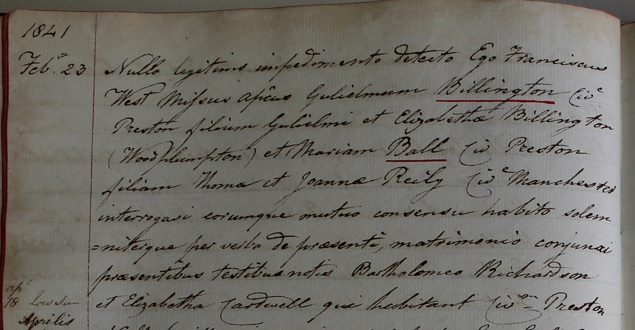 1841
Feb. 23 Nullo legitimo impedimento detecto Ego Franciscus
West Missus apcus Gulielmum Billington (civ.
Preston filium Gulielmi et Elizabetha Billington
(Woodplumpton) et Mariam Ball (iv Preston
filiam Thoma et Joannæ Reily (iv Manchester
interrogavi eorumque mutuo consensu habito solem
=niterque per verba de præsenti, matrimonio conjunxi
præsentibus testibus notis Bartholomeo Richardson
18 Low Sun et Elizabetha Cardwell qui habitant Preston
Aprilis